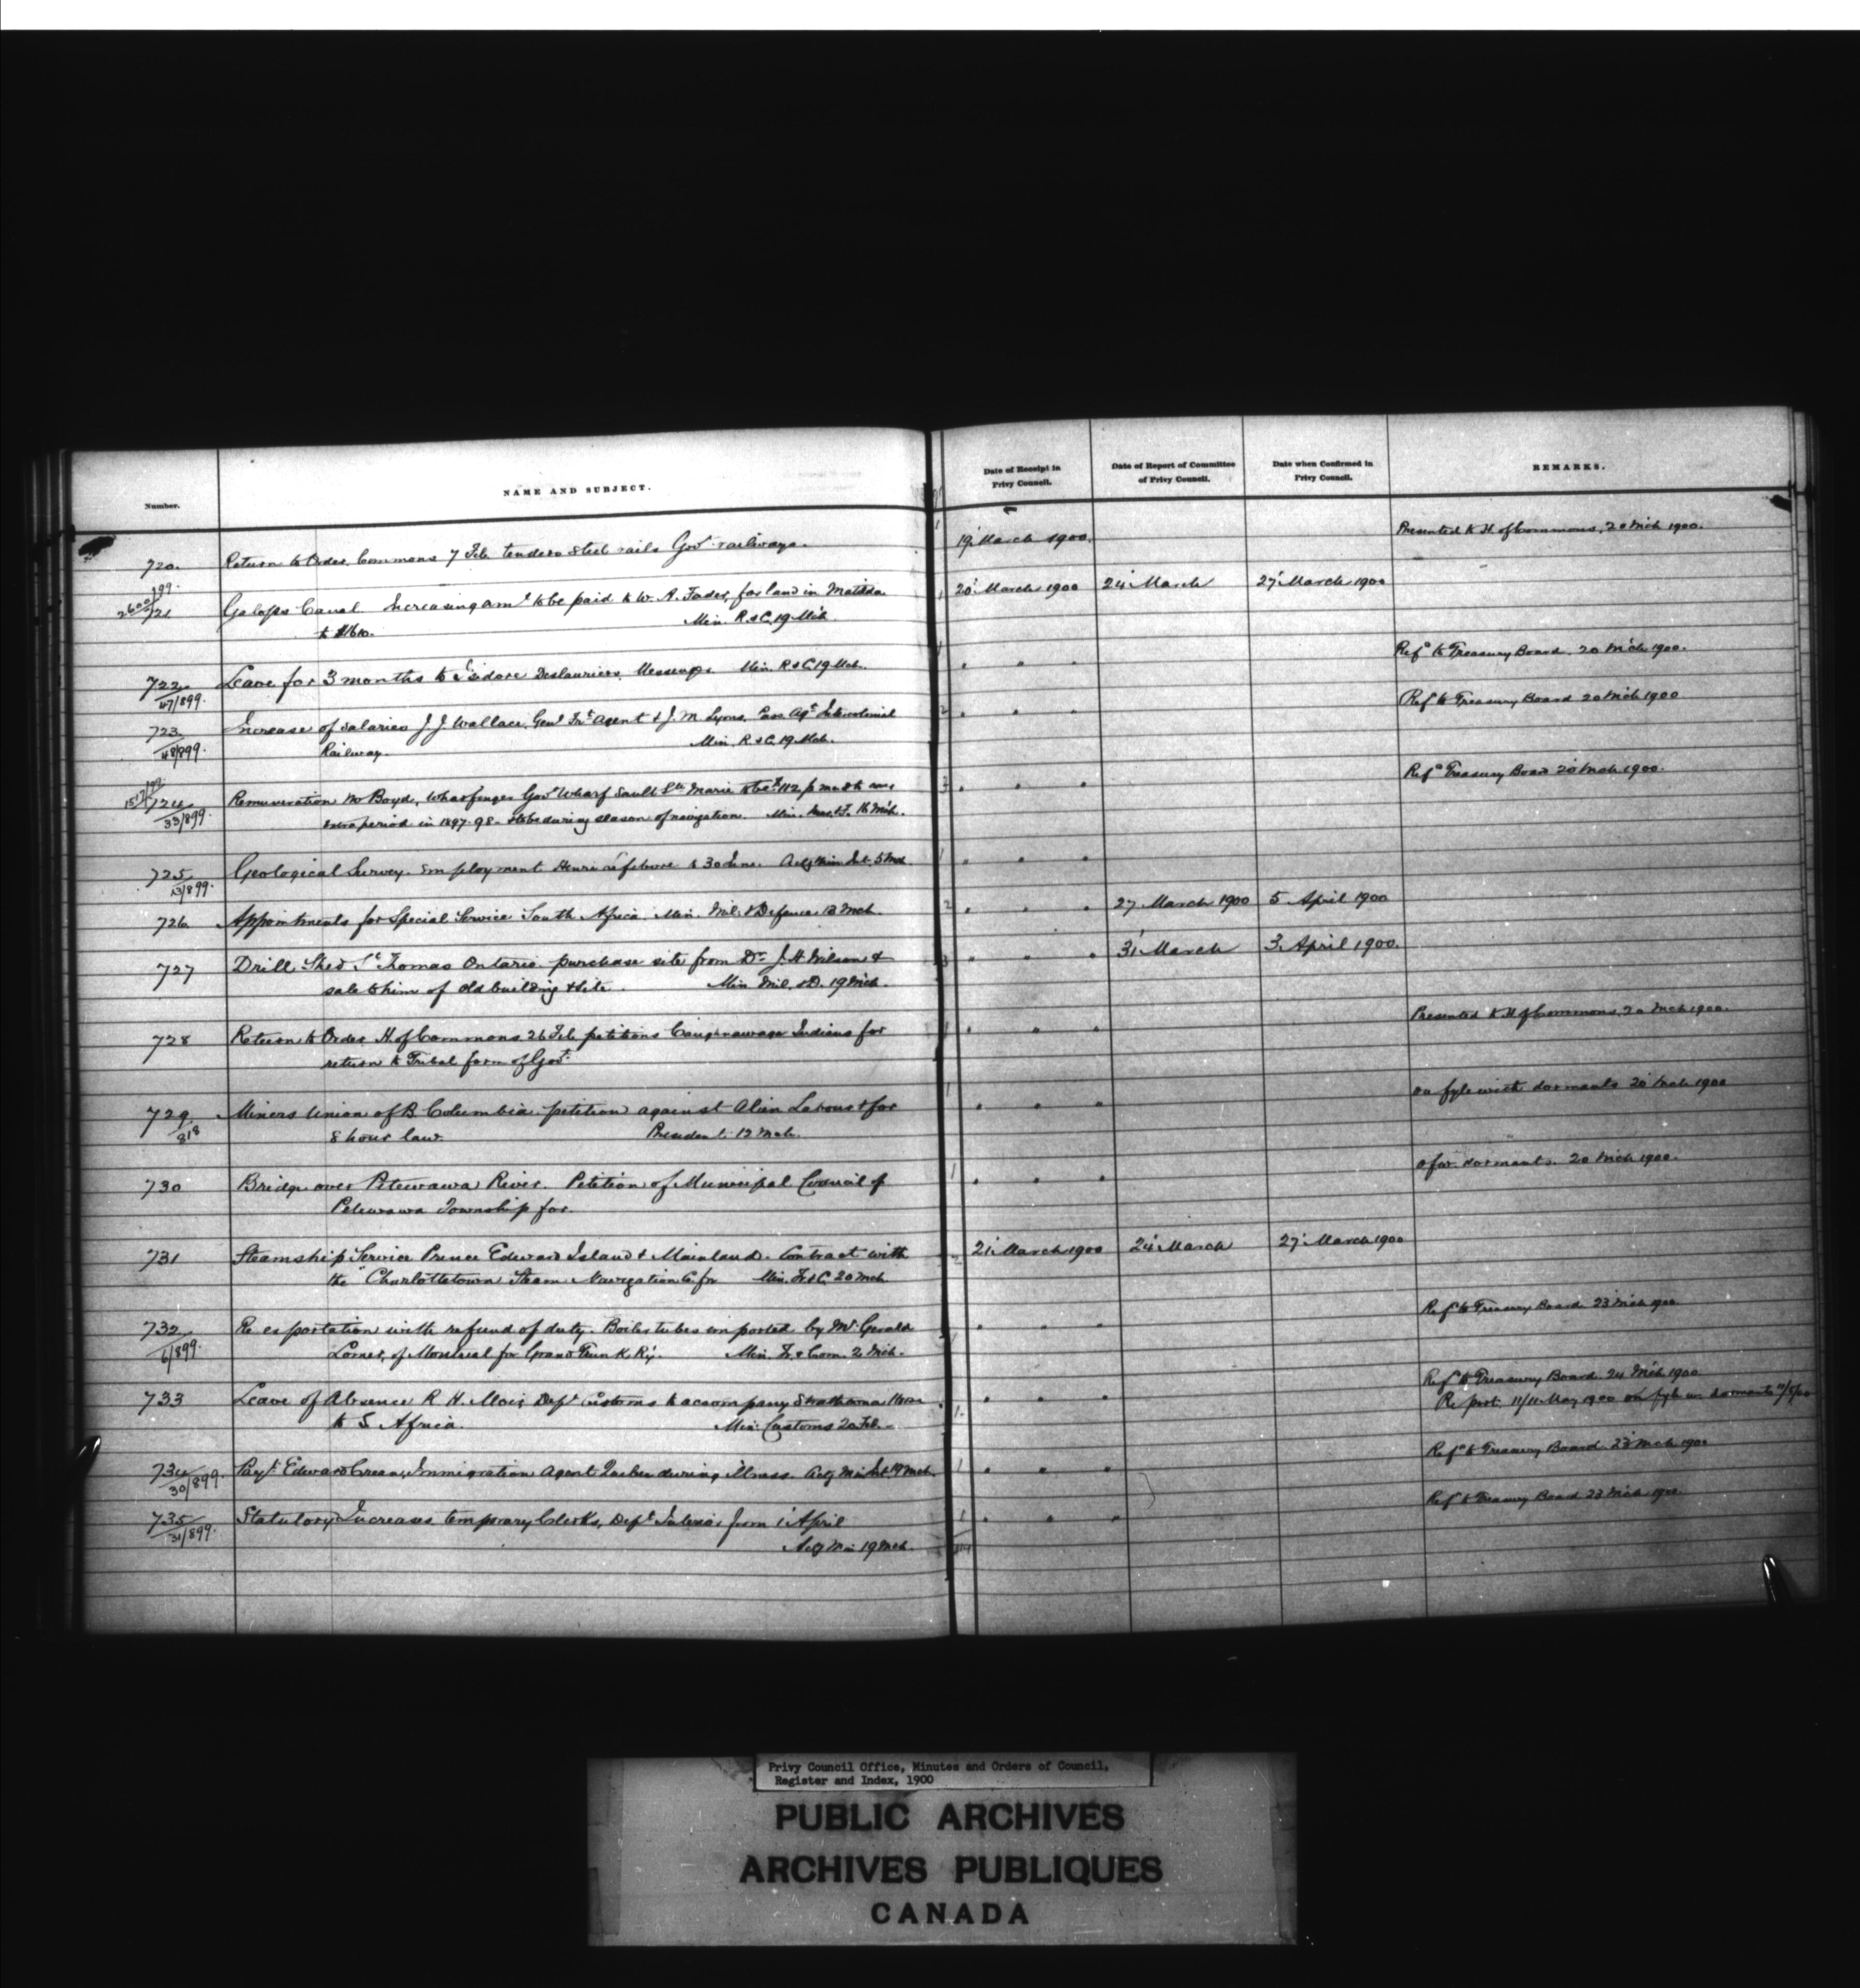 Number.
NAME AND SUBJECT.
Date of Receipt in Privy Council.
Date of Report of Committee of Privy Council.
Date when Confirmed in Privy Council.
REMARKS.
720. Return to Order, Commons 7 Feb. tenders steel rails Govt railways. 19 March 1900. Presented to H. of Commons, 20 Mch 1900.
2600/99
721 Galops Canal Increasing amt to be paid to W. A. Fader, for land in Matilda 20 March 1900 24 March 27 March 1900
to $1610. Min. R & C, 19 Mch
722 Leave for 3 months to Isidore Deslauriers, Messenger. Min. R & C 19 Mch. Refd to Treasury Board. 20 Mch 1900.
47/899.
723 Increase of Salaries J. J. Wallace, Genl Frt Agent & J. M. Lyons, Pass. Agt Intercolonial Refd to Treasury Board 20 Mch 1900
48/899. Railway. Min. R & C, 19 Mch.
724 Remuneration Boyd, Wharfinger Govt Wharf Sault Ste Marie Refd Treasury Board 20 Mch 1900.
33/899. period in 1897-98 during season of navigation. Min. 16 Mch.
725 Geological Survey. Employment Henri Lefebvre to 30 June. Actg Min Int. 5 Mch
13/899.
726 Appointments for Special Service South Africa. Min. Mil. & Defence 13 Mch. 27 March 1900 5 April 1900
727 Drill Shed St Thomas Ontario. purchase site from Dr J. H. Wilson & 31 March 3 April 1900.
sale to him of old building & site. Min Mil. & D. 19 Mch.
728 Return to Order H. of Commons 26 Feb petitions Caughnawaga Indians for Presented to H of Commons, 20 Mch 1900.
return to Tribal form of Govt.
729 Miners Union of B. Columbia. petition against Alien Labour & for on fyle with dormants 20 Mch 1900
818 8 hour law. President 12 Mch.
730 Bridge over Petewawa River. Petition of Municipal Council of dormants. 20 Mch 1900.
Petewawa Township for.
731 Steamship Service Prince Edward Island & Mainland. Contract with 21 March 1900 24 March 27 March 1900
the Charlottetown Steam Navigation Co. for Min. Tr. & C. 20 Mch
732 Re exportation with refund of duty. Boiler tubes imported by Mr Gerald Refd to Treasury Board 23 Mch 1900
6/899. Lomer, of Montreal for Grand Trunk Ry. Min. Tr. & Com. 2 Mch.
733 Leave of Absence R. H. Moir, Dept Customs to accompany Strathcona Horse Refd to Treasury Board. 24 Mch 1900
to S. Africa. Min. Customs 20 Feb. Report 11/11 May 1900 on fyle w. dormants
734 Payt Edward Crean, Immigration Agent Quebec during illness. Actg Min Int 19 Mch. Refd to Treasury Board. 23 Mch 1900
30/899.
735 Statutory Increases temporary Clerks, Dept Interior from 1 April Refd to Treasury Board 23 Mch 1900
31/899. Actg Min 19 Mch.
Privy Council Office, Minutes and Orders of Council,
Register and Index, 1900
PUBLIC ARCHIVES
ARCHIVES PUBLIQUES
CANADA